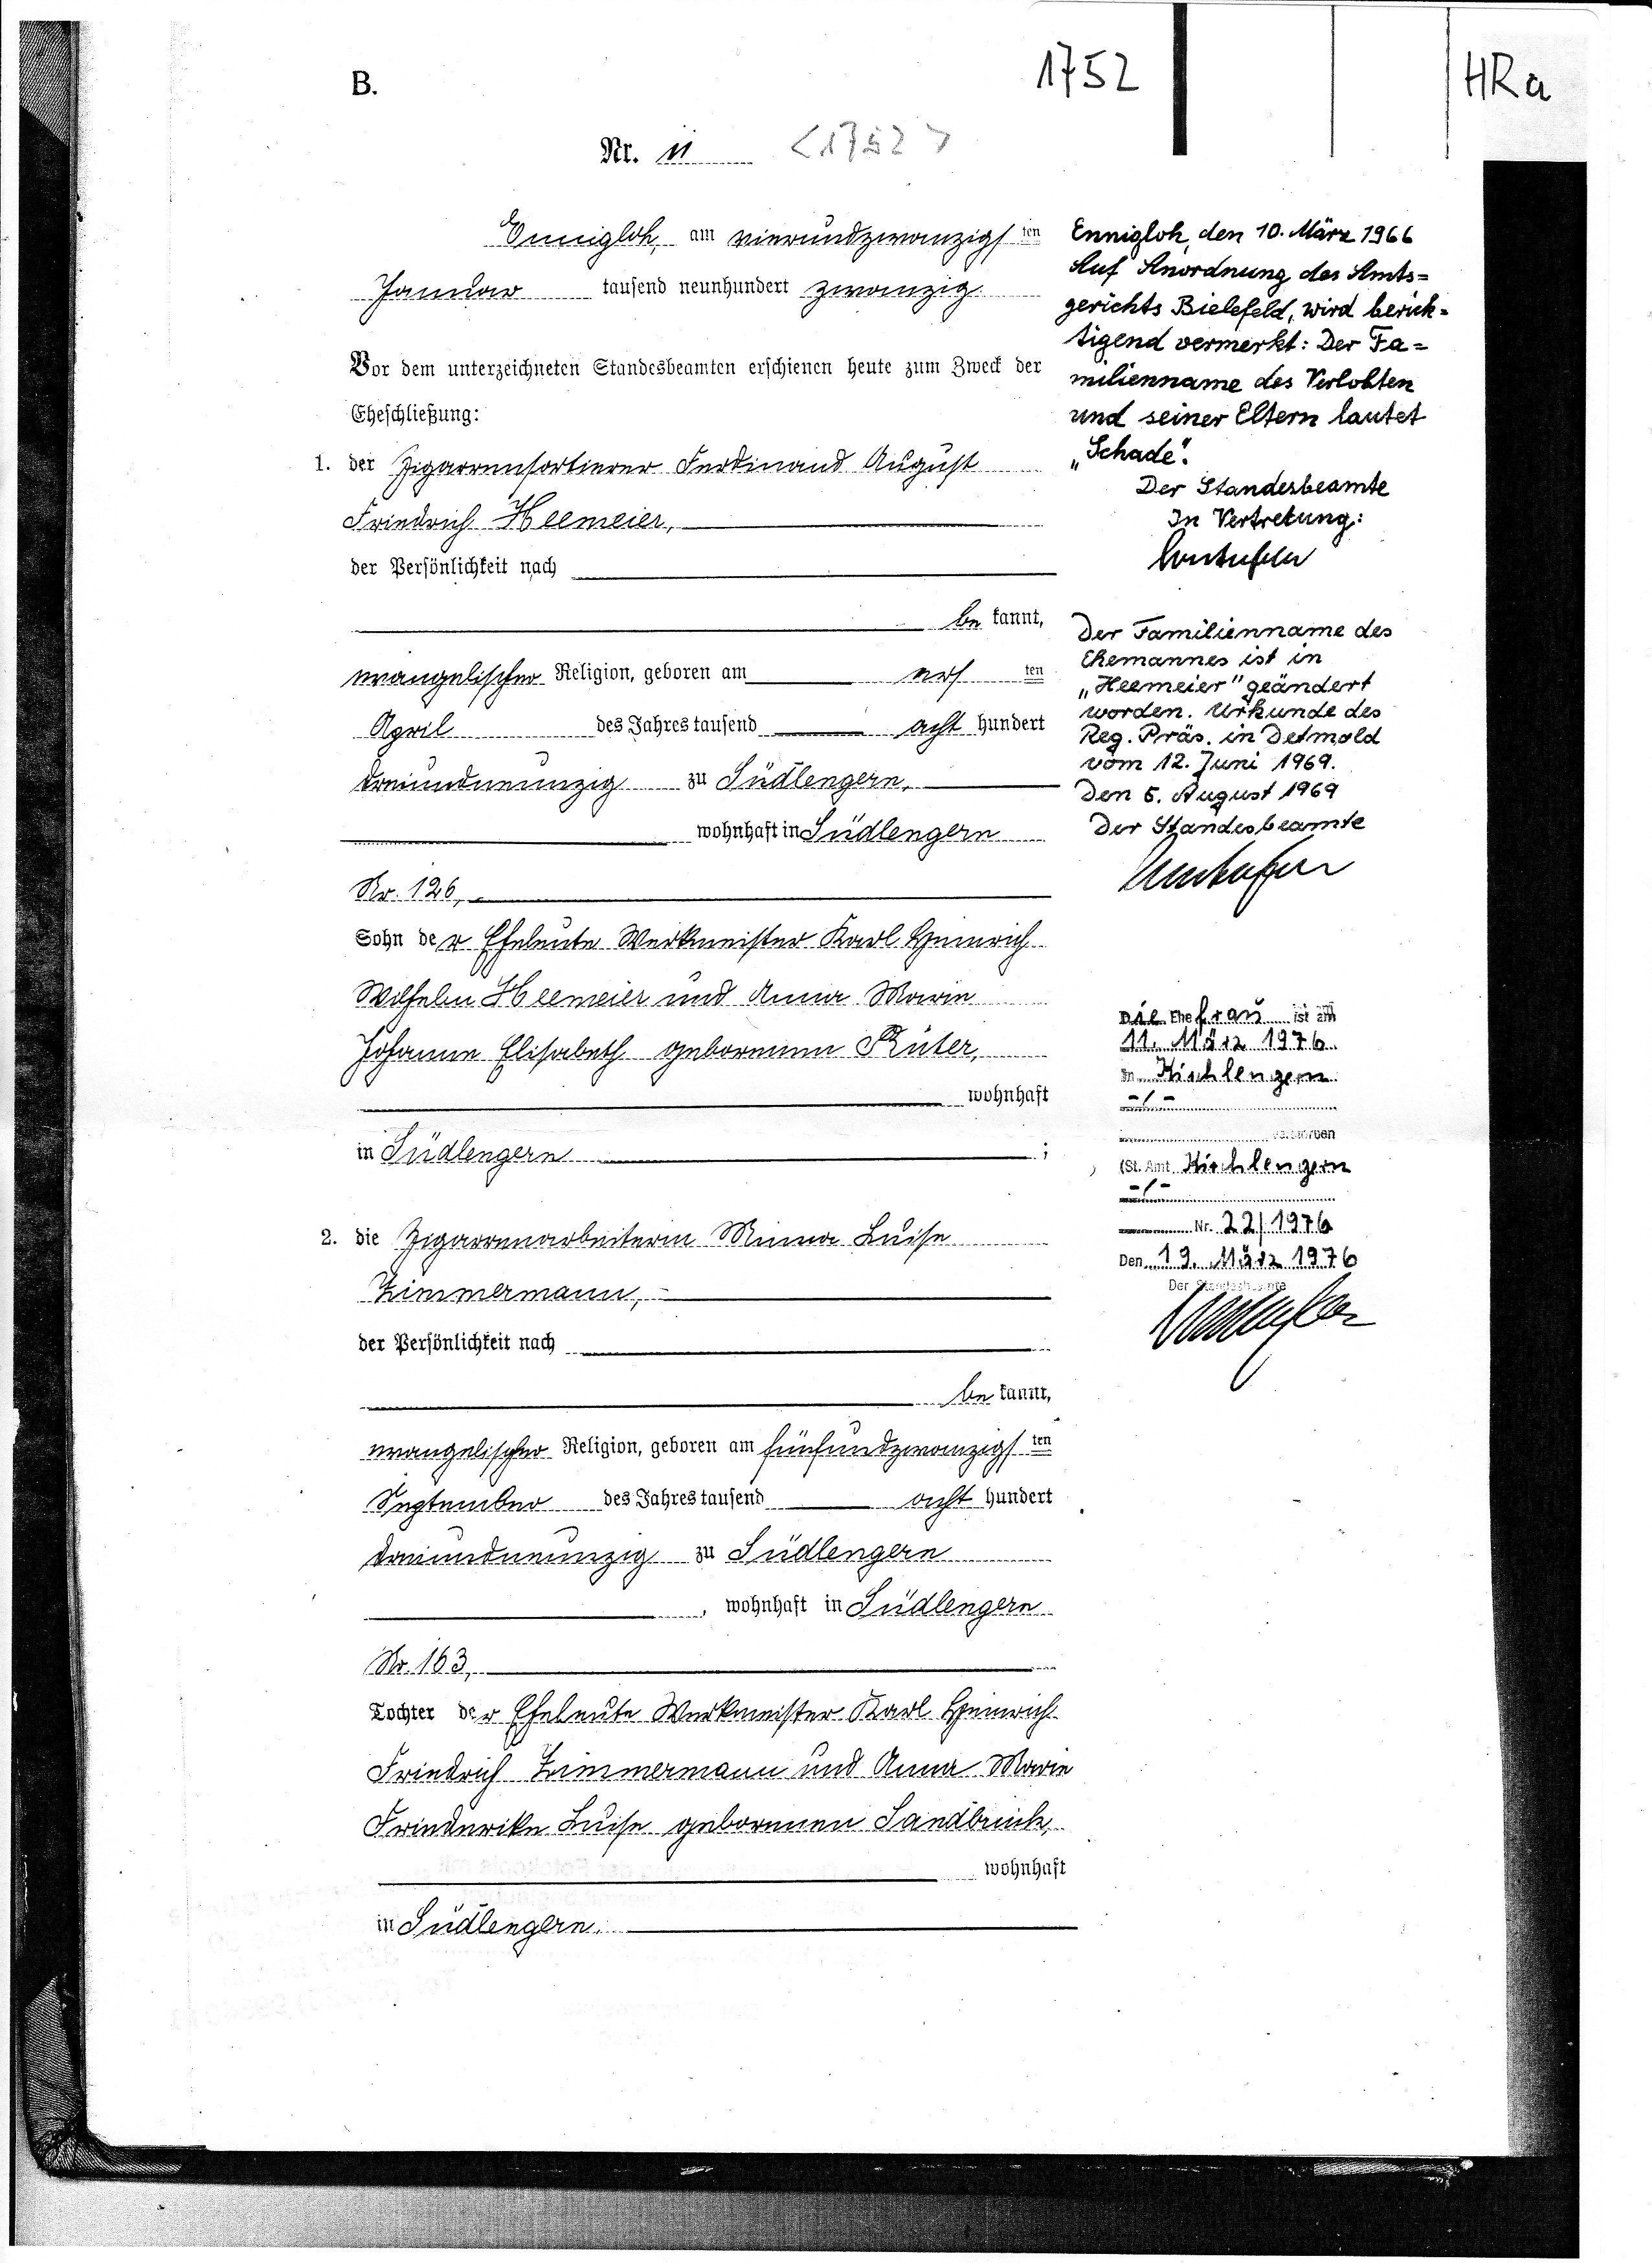 B.
1752
HRa
Nr. 11 <1752>
Ennigloh, am vierundzwanzigsten
Januar tausend neunhundert zwanzig
Vor dem unterzeichneten Standesbeamten erschienen heute zum Zweck der
Eheschließung:
1. der Zigarrensortierer Ferdinand August
Friedrich Heemeier,
der Persönlichkeit nach
be kannt,
evangelischer Religion, geboren am ersten
April des Jahres tausend acht hundert
dreiundneunzig zu Südlengern,
wohnhaft in Südlengern
Nr. 126,
Sohn der Eheleute Werkmeister Karl Heinrich
Wilhelm Heemeier und Anna Marie
Johanne Elisabeth geborenen Rüter,
wohnhaft
in Südlengern ;
2. die Zigarrenarbeiterin Minna Luise
Zimmermann,
der Persönlichkeit nach
be kannt,
evangelischer Religion, geboren am fünfundzwanzigsten
September des Jahres tausend acht hundert
dreiundneunzig zu Südlengern
, wohnhaft in Südlengern
Nr. 163,
Tochter der Eheleute Werkmeister Karl Heinrich
Friedrich Zimmermann und Anna Marie
Friederike Luise geborenen Sandbrink,
wohnhaft
in Südlengern.
Ennigloh, den 10. März 1966
Auf Anordnung des Amts=
gerichts Bielefeld, wird berich=
tigend vermerkt: Der Fa=
milienname des Verlobten
und seiner Eltern lautet
„Schade".
Der Standesbeamte
In Vertretung:
Der Familienname des
Ehemannes ist in
„Heemeier" geändert
worden. Urkunde des
Reg. Präs. in Detmold
vom 12. Juni 1969.
Den 5. August 1969
Der Standesbeamte
Die Ehefrau ist am
11. März 1976
in Kirchlengern
-/-
verstorben
(St. Amt Kirchlengern
-/-
Nr. 22/1976
Den 19. März 1976
Der Standesbeamte